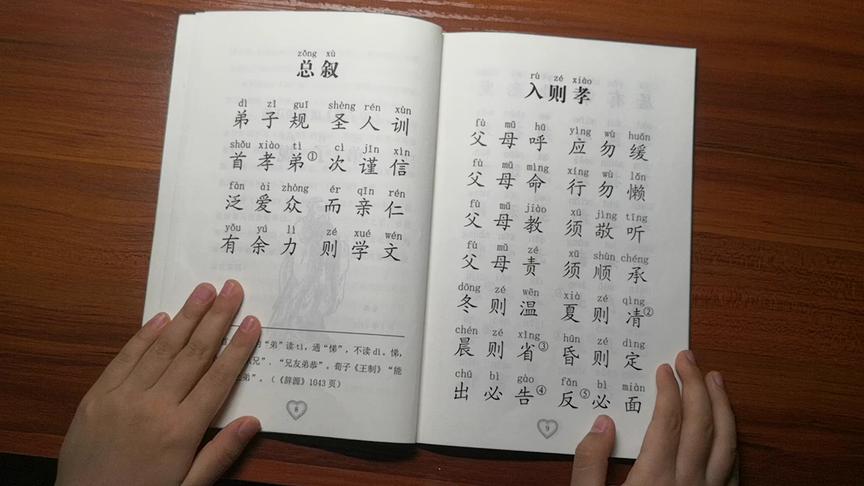 zǒng xù
总叙
dì zǐ guī shèng rén xùn
弟子规 圣人训
shǒu xiào tì cì jǐn xìn
首孝弟① 次谨信
fàn ài zhòng ér qīn rén
泛爱众 而亲仁
yǒu yú lì zé xué wén
有余力 则学文
的“弟”读tì，通“悌”，不读dì。悌，
兄”，“兄友弟恭”。荀子《王制》“能
弟”。（《辞源》1043页）
8
rù zé xiào
入则孝
fù mǔ hū yìng wù huǎn
父母呼 应勿缓
fù mǔ mìng xíng wù lǎn
父母命 行勿懒
fù mǔ jiào xū jìng tīng
父母教 须敬听
fù mǔ zé xū shùn chéng
父母责 须顺承
dōng zé wēn xià zé qìng
冬则温 夏则凊②
chén zé xǐng hūn zé dìng
晨则省③ 昏则定
chū bì gào fǎn bì miàn
出必告④ 反⑤必面
9